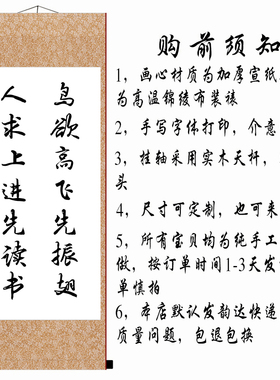 鸟欲高飞先振翅
人求上进先读书
购前须知
1，画心材质为加厚宣纸
为高温锦绫布装裱
2，手写字体打印，介意
3，挂轴采用实木天杆，
头
4，尺寸可定制，也可来
5，所有宝贝均为纯手工
做，按订单时间1-3天发
单慎拍
6，本店默认发韵达快递
质量问题，包退包换